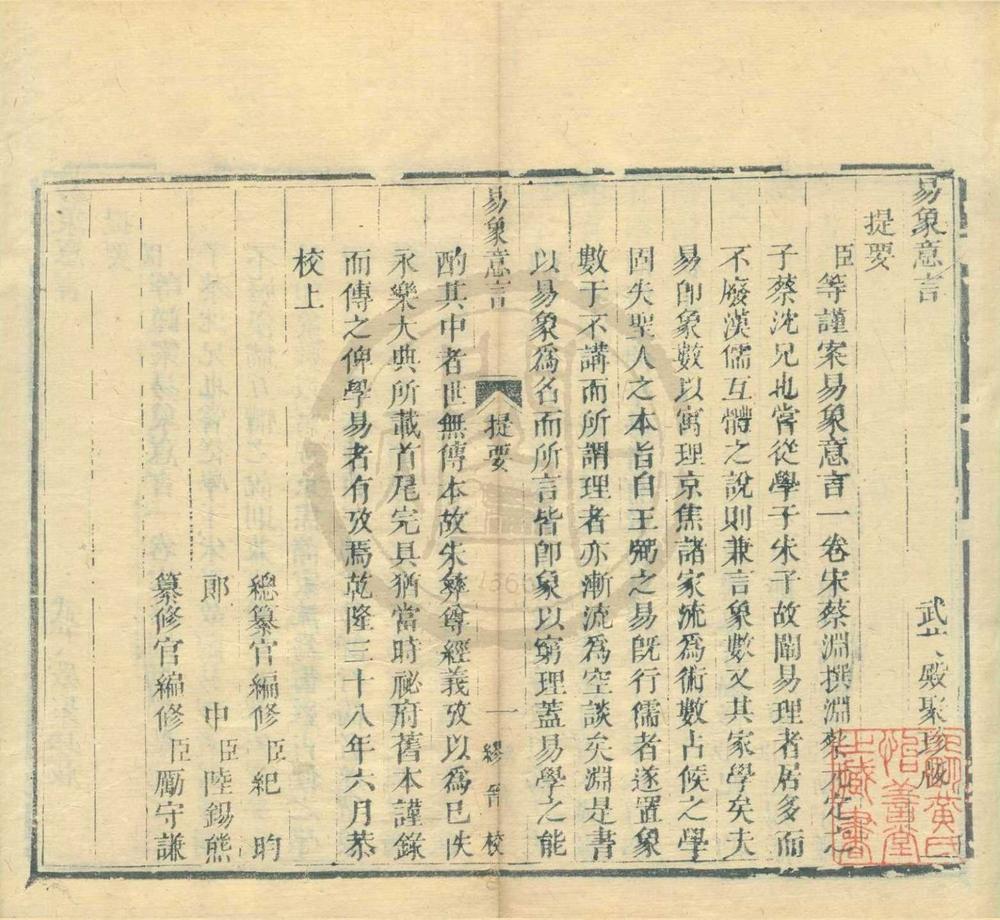 易象意言
武 殿聚珍版
提要
臣等謹案易象意言一卷宋蔡淵撰淵蔡元定之
子蔡沈兄也嘗從學于朱子故闡易理者居多而
不廢漢儒互體之說則兼言象數又其家學矣夫
易卽象數以寓理京焦諸家流爲術數占候之學
固失聖人之本旨自王弼之易旣行儒者遂置象
數于不講而所謂理者亦漸流爲空談矣淵是書
以易象爲名而所言皆卽象以窮理蓋易學之能
易象意言
提要
一
繆晉校
酌其中者世無傳本故朱彝尊經義攷以爲已佚
永樂大典所載首尾完具猶當時祕府舊本謹錄
而傳之俾學易者有攷焉乾隆三十八年六月恭
校上
總纂官編修臣紀昀
郞中臣陸錫熊
纂修官編修臣勵守謙